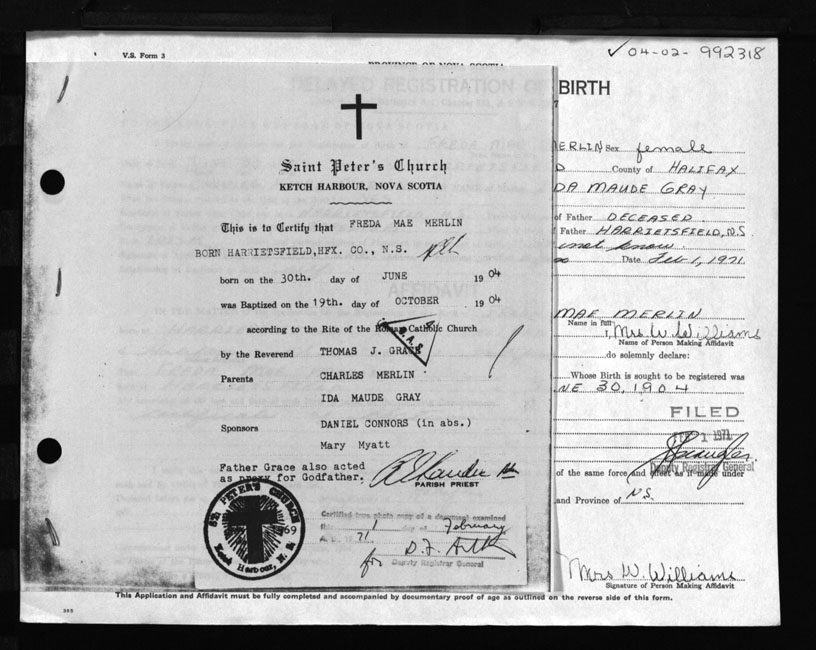 V.S. Form 3
✓04-02- 992318
PROVINCE OF NOVA SCOTIA
DELAYED REGISTRATION OF BIRTH
Saint Peter's Church
KETCH HARBOUR, NOVA SCOTIA
This is to Certify that FREDA MAE MERLIN
BORN HARRIETSFIELD,HFX. CO., N.S.
born on the 30th. day of JUNE 1904
was Baptized on the 19th. day of OCTOBER 1904
according to the Rite of the Roman Catholic Church
by the Reverend THOMAS J. GRACE
Parents CHARLES MERLIN
IDA MAUDE GRAY
Sponsors DANIEL CONNORS (in abs.)
Mary Myatt
Father Grace also acted
as proxy for Godfather.
PARISH PRIEST
ST. PETER'S CHURCH
Ketch Harbour, N. S.
Certified true photo copy of a document examined
this 1 day of February
A. D. 19 71
for
Deputy Registrar General
ERLIN Sex female
County of HALIFAX
DA MAUDE GRAY
of Father DECEASED
Father HARRIETSFIELD, N.S
not know
Date Feb 1, 1971
AFFIDAVIT
MAE MERLIN
Name in full
Mrs W Williams
Name of Person Making Affidavit
do solemnly declare:
Whose Birth is sought to be registered was
NE 30, 1904
FILED
1 1971
Deputy Registrar General
of the same force and effect as if made under
and Province of N.S.
Mrs W. Williams
Signature of Person Making Affidavit
This Application and Affidavit must be fully completed and accompanied by documentary proof of age as outlined on the reverse side of this form.